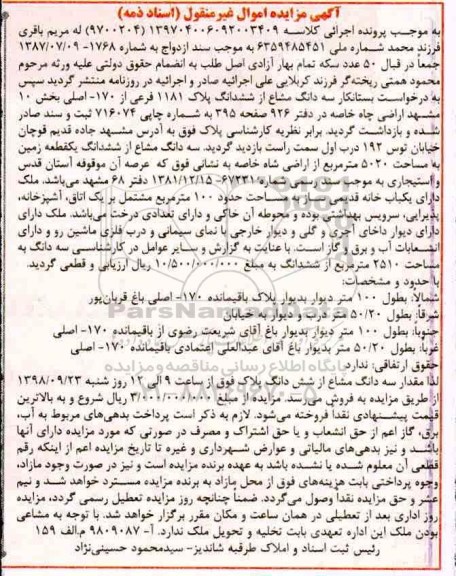 آگهی مزایده اموال غیرمنقول (اسناد ذمه)
به موجب پرونده اجرائی کلاسه ۱۳۹۷۰۴۰۰۶۰۹۲۰۰۳۴۰۹ (۹۷۰۰۲۰۴) له مریم باقری
فرزند محمد شماره ملی ۶۳۵۹۴۸۵۴۵۱ به موجب سند ازدواج به شماره ۱۷۶۸- ۱۳۸۷/۰۷/۰۹
جمعاً در قبال ۵۰ عدد سکه تمام بهار آزادی اصل طلب به انضمام حقوق دولتی علیه ورثه مرحوم
محمود همتی ریخته‌گر فرزند کربلایی علی اجرائیه صادر و اجرائیه در روزنامه منتشر گردید سپس
به درخواست بستانکار سه دانگ مشاع از ششدانگ پلاک ۱۱۸۱ فرعی از ۱۷۰- اصلی بخش ۱۰
مشهد اراضی چاه خاصه در دفتر ۹۲۶ صفحه ۳۹۵ به شماره چاپی ۷۱۶۰۷۴ ثبت و سند صادر
شده و بازداشت گردید. برابر نظریه کارشناسی پلاک فوق به آدرس مشهد جاده قدیم قوچان
خیابان توس ۱۹۲ درب اول سمت راست بازدید گردید. سه دانگ مشاع از ششدانگ یکقطعه زمین
به مساحت ۵۰۲۰ مترمربع از اراضی شاه خاصه به نشانی فوق که عرصه آن موقوفه آستان قدس
و استیجاری به موجب شماره ۶۷۲۳۱- ۱۳۸۱/۱۲/۱۵ دفتر ۶۸ مشهد می‌باشد. ملک
دارای یکباب خانه قدیمی مساحت حدود ۱۰۰ مترمربع مشتمل بر یک اتاق، آشپزخانه،
پذیرایی، سرویس بهداشتی بوده و محوطه آن خاکی و دارای تعدادی درخت می‌باشد. ملک دارای
دارای دیوار داخای آجری و گلی و دیوار خارجی با نمای سیمانی و درب فلزی ماشین رو و دارای
انشعابات آب و برق و گاز است. با عنایت به گزارش و سایر عوامل در کارشناسی سه دانگ به
مساحت ۲۵۱۰ مترمربع از ششدانگ به مبلغ ۱۰/۵۰۰/۰۰۰/۰۰۰ ریال ارزیابی و قطعی گردید.
با حدود و مشخصات:
شمالا: بطول ۱۰۰ متر دیوار بدیوار پلاک باقیمانده ۱۷۰- اصلی باغ قربان‌پور
شرقا: بطول ۵۰/۲۰ متر درب و دیوار به خیابان
جنوبا: بطول ۱۰۰ متر دیوار بدیوار باغ آقای شریعت رضوی از باقیمانده ۱۷۰- اصلی
غربا: بطول ۵۰/۲۰ متر بدیوار باغ آقای عبدالعلی اعتمادی باقیمانده ۱۷۰- اصلی
حقوق ارتفاقی: ندارد
لذا مقدار سه دانگ مشاع از شش دانگ پلاک فوق از ساعت ۹ الی ۱۲ روز شنبه ۱۳۹۸/۰۹/۲۳
از طریق مزایده به فروش می‌رسد. مزایده از مبلغ ریال شروع و به بالاترین
قیمت پیشنهادی نقدا فروخته می‌شود. لازم به ذکر است پرداخت بدهی‌های مربوط به آب،
برق، گاز اعم از حق انشعاب و یا حق اشتراک و مصرف در صورتی که مورد مزایده دارای آنها
باشد و نیز بدهی‌های مالیاتی و عوارض شهرداری و غیره تا تاریخ مزایده اعم از اینکه رقم
قطعی آن معلوم شده یا نشده باشد به عهده برنده مزایده است و نیز در صورت وجود مازاد،
وجوه پرداختی بابت هزینه‌های فوق از محل مازاد به برنده مزایده مسترد خواهد شد و نیم
عشر و حق مزایده نقدا وصول می‌گردد. ضمناً چنانچه روز مزایده تعطیل رسمی گردد، مزایده
روز اداری بعد از تعطیلی در همان ساعت و مکان مقرر برگزار خواهد شد. با توجه به مشاعی
بودن ملک این اداره تعهدی بابت تخلیه و تحویل ملک ندارد. آ- ۹۸۰۹۰۸۷ م.الف ۱۵۹
رئیس ثبت اسناد و املاک طرقبه شاندیز- سیدمحمود حسینی‌نژاد
ParsNamadData
پایگاه اطلاع رسانی مناقصه و مزایده